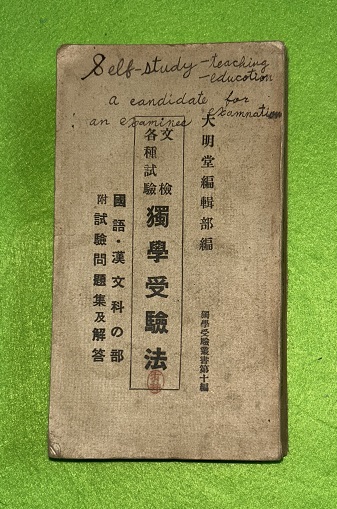 Self-study-teaching
-education
a candidate for
an examinee examnation
大明堂編輯部編
文檢
各種試驗
獨學受驗法
國語・漢文科の部
附試驗問題集及解答
獨學受驗叢書第十編